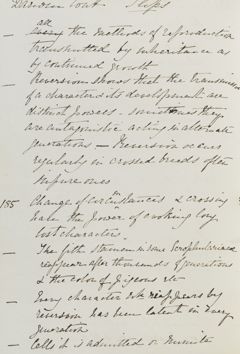 Darwin Cont. Slips
— all the methods of reproduction
transmitted by inheritance as
by continued growth
— Reversion shows that the transmission
of a character & its development are
distinct powers — sometimes they
are antagonistic acting in alternate
generations — Reversion occurs
regularly in crossed breeds often
in pure ones
185 Change of circumstances & crossing
have the power of evoking long
lost characters.
— The fifth stamen in some Scrophulariaceae
reappear after thousands of generations
& the color of pigeons etc —
— Every character wh reappears by
reversion has been latent in every
generation
— Cells it is admitted or